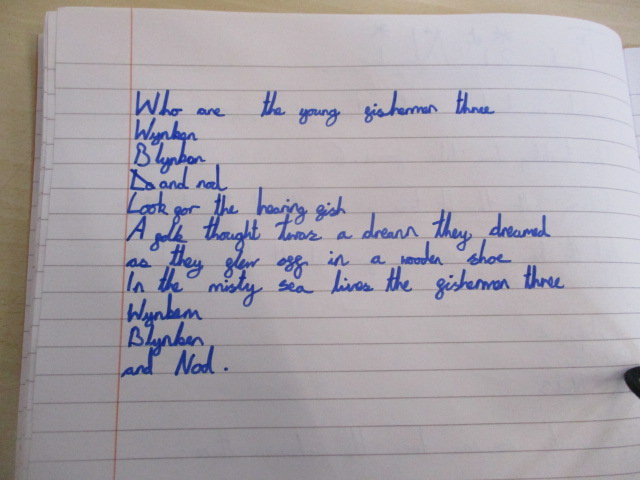 Who are the young fisherman three
Wynken
Blynken
and nod
Look for the hearing fish
A folk thought twas a dream they dreamed
as they flew off in a wooden shoe
In the misty sea lives the fisherman three
Wynken
Blynken
and Nod.